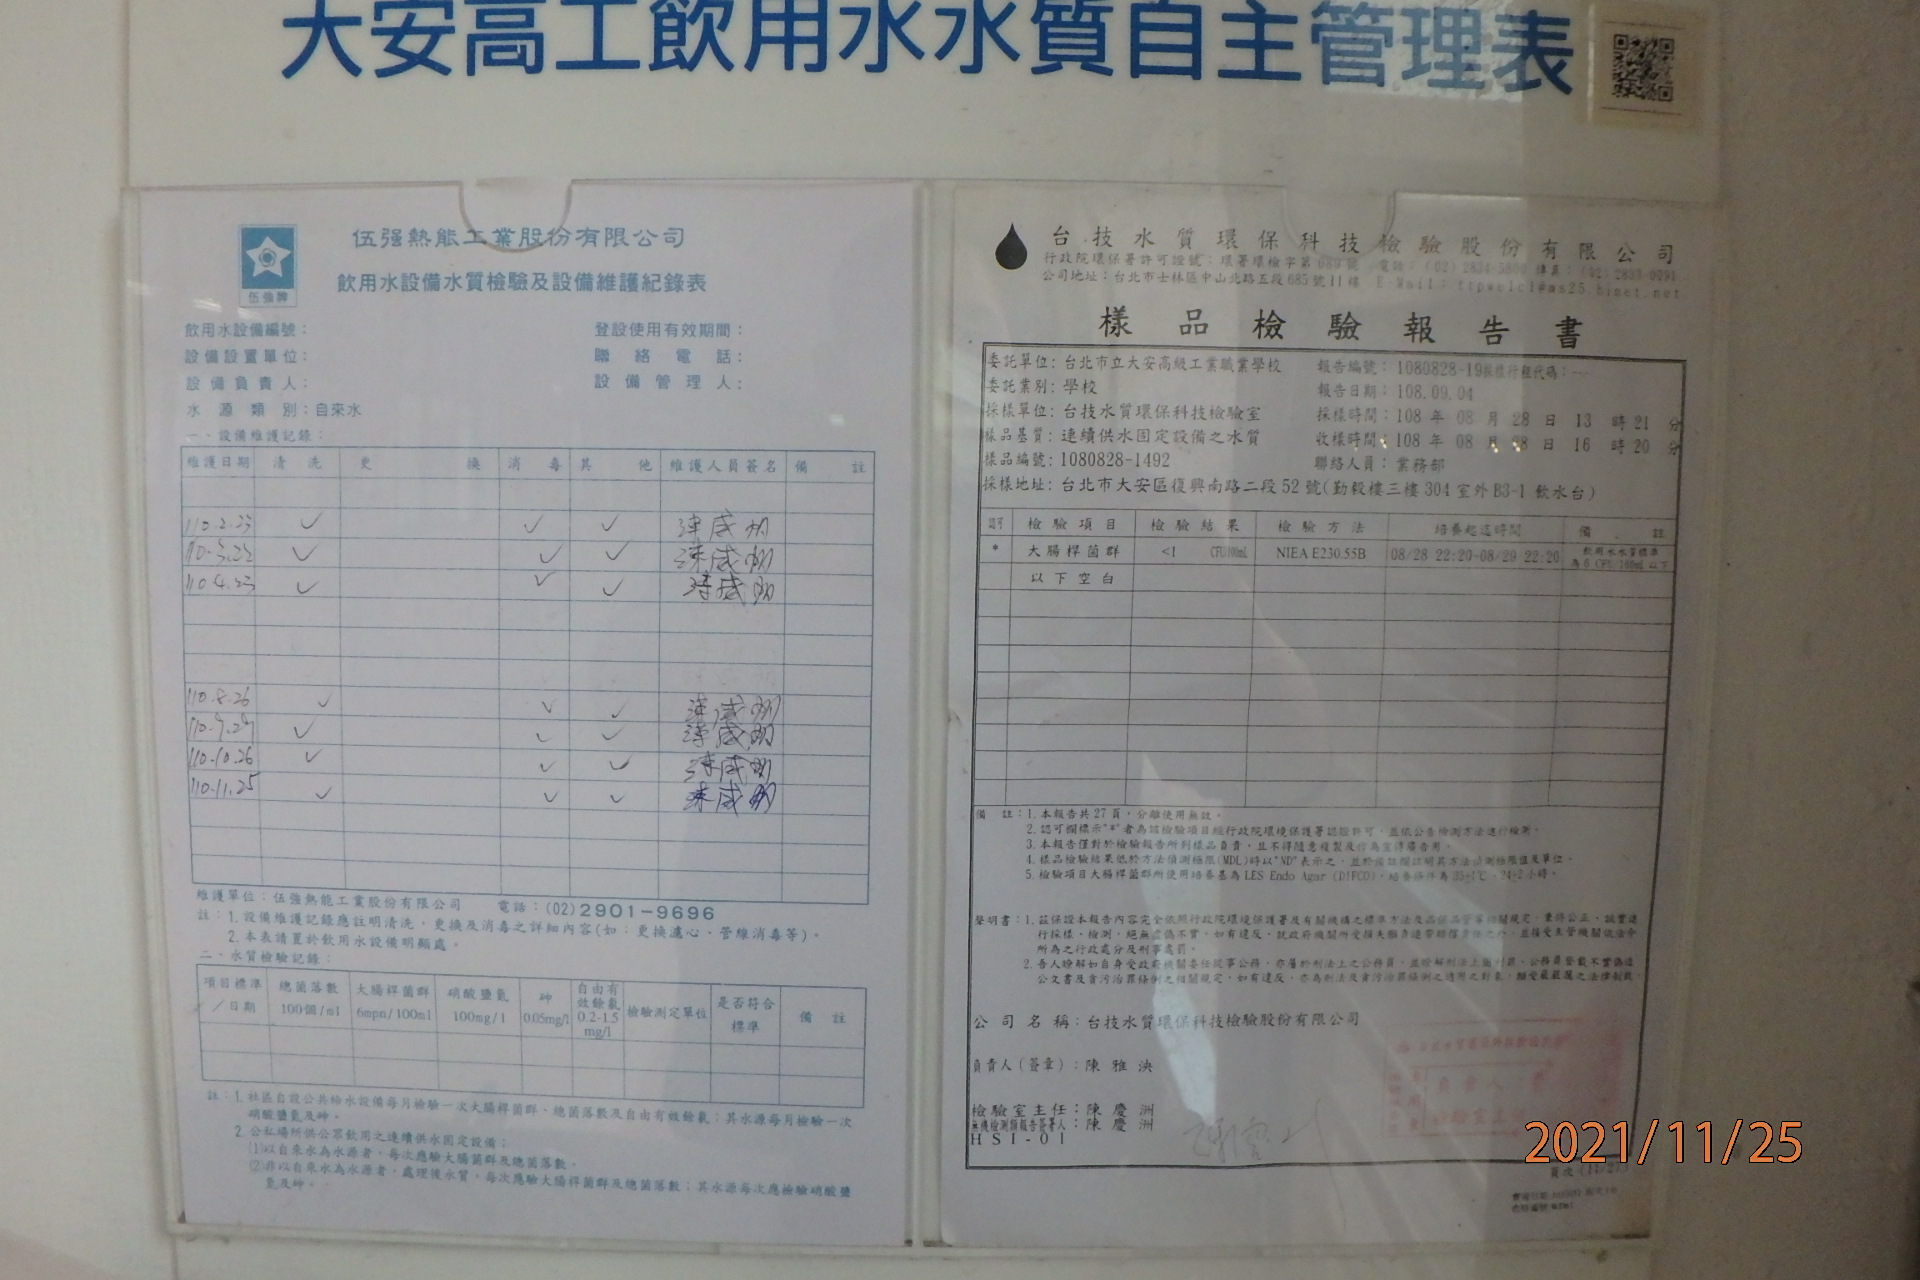 大安高工飲用水水質自主管理表
伍強牌
伍强熱能工業股份有限公司
飲用水設備水質檢驗及設備維護紀錄表
飲用水設備編號：
登設使用有效期間：
設備設置單位：
聯絡電話：
設備負責人：
設備管理人：
水源類別：自來水
一、設備維護記錄：
維護日期 清洗 更換 消毒 其他 維護人員簽名 備註
110.2.23 ✓ ✓ ✓
110.3.22 ✓ ✓ ✓
110.4.23 ✓ ✓ ✓
110.8.26 ✓ ✓ ✓
110.9.29 ✓ ✓ ✓
110.10.26 ✓ ✓ ✓
110.11.25 ✓ ✓ ✓
維護單位：伍強熱能工業股份有限公司 電話：(02)2901-9696
註：1.設備維護記錄應註明清洗，更換及消毒之詳細內容(如：更換濾心、管線消毒等)。
2.本表請置於飲用水設備明顯處。
二、水質檢驗記錄：
項目標準／日期 總菌落數 100個/ml 大腸桿菌群 6mpn/100ml 硝酸鹽氮 100mg/l 砷 0.05mg/l 自由有效餘氯 0.2-1.5 mg/l 檢驗測定單位 是否符合標準 備註
註：1.社區自設公共給水設備每月檢驗一次大腸桿菌群、總菌落數及自由有效餘氯；其水源每月檢驗一次
硝酸鹽氮及砷。
2.公私場所供公眾飲用之連續供水固定設備：
⑴以自來水為水源者，每次應驗大腸桿菌群及總菌落數。
⑵非以自來水為水源者，處理後水質，每次應驗大腸桿菌群及總菌落數；其水源每次應檢驗硝酸鹽
氮及砷。
台技水質環保科技檢驗股份有限公司
行政院環保署許可證號：環署環檢字第089號 電話：(02)2834-5800 傳真：(02)2833-0291
公司地址：台北市士林區中山北路五段685號11樓 E-Mail：
樣品檢驗報告書
委託單位：台北市立大安高級工業職業學校
報告編號：1080828-19採樣行程代碼：---
委託業別：學校
報告日期：108.09.04
採樣單位：台技水質環保科技檢驗室
採樣時間：108年08月28日13時21分
樣品基質：連續供水固定設備之水質
收樣時間：108年08月28日16時20分
樣品編號：1080828-1492
聯絡人員：業務部
採樣地址：台北市大安區復興南路二段52號(勤毅樓三樓304室外B3-1飲水台)
認可 檢驗項目 檢驗結果 檢驗方法 培養起迄時間 備註
* 大腸桿菌群 <1 CFU/100mL NIEA E230.55B 08/28 22:20-08/29 22:20 飲用水水質標準為6 CFU/100mL以下
以下空白
備註：1.本報告共27頁，分離使用無效。
2.認可欄標示"*"者為該檢驗項目經行政院環境保護署認證許可，並依公告檢測方法進行檢測。
3.本報告僅對於檢驗報告所列樣品負責，且不得隨意複製及作為宣傳廣告用。
4.樣品檢驗結果低於方法偵測極限(MDL)時以"ND"表示之，並於備註欄註明其方法偵測極限值及單位。
5.檢驗項目大腸桿菌群所使用培養基為LES Endo Agar (DIFCO)，培養條件為35±1℃，24±2小時。
聲明書：1.茲保證本報告內容完全依照行政院環境保護署及有關機構之標準方法及品保品管等相關規定，秉持公正、誠實進
行採樣、檢測，絕無虛偽不實，如有違反，就政府機關所受損失願負連帶賠償責任之外，並接受主管機關依法令
所為之行政處分及刑事處罰。
2.吾人瞭解如自身受政府機關委任從事公務，亦屬於刑法上之公務員，並瞭解刑法上圖利罪、公務員登載不實偽造
公文書及貪污治罪條例之相關規定，如有違反，亦為刑法及貪污治罪條例之適用之對象，願受最嚴厲之法律制裁。
公司名稱：台技水質環保科技檢驗股份有限公司
負責人(簽章)：陳雅泱
檢驗室主任：陳慶洲
無機檢測類報告簽署人：陳慶洲
HSI-01
2021/11/25